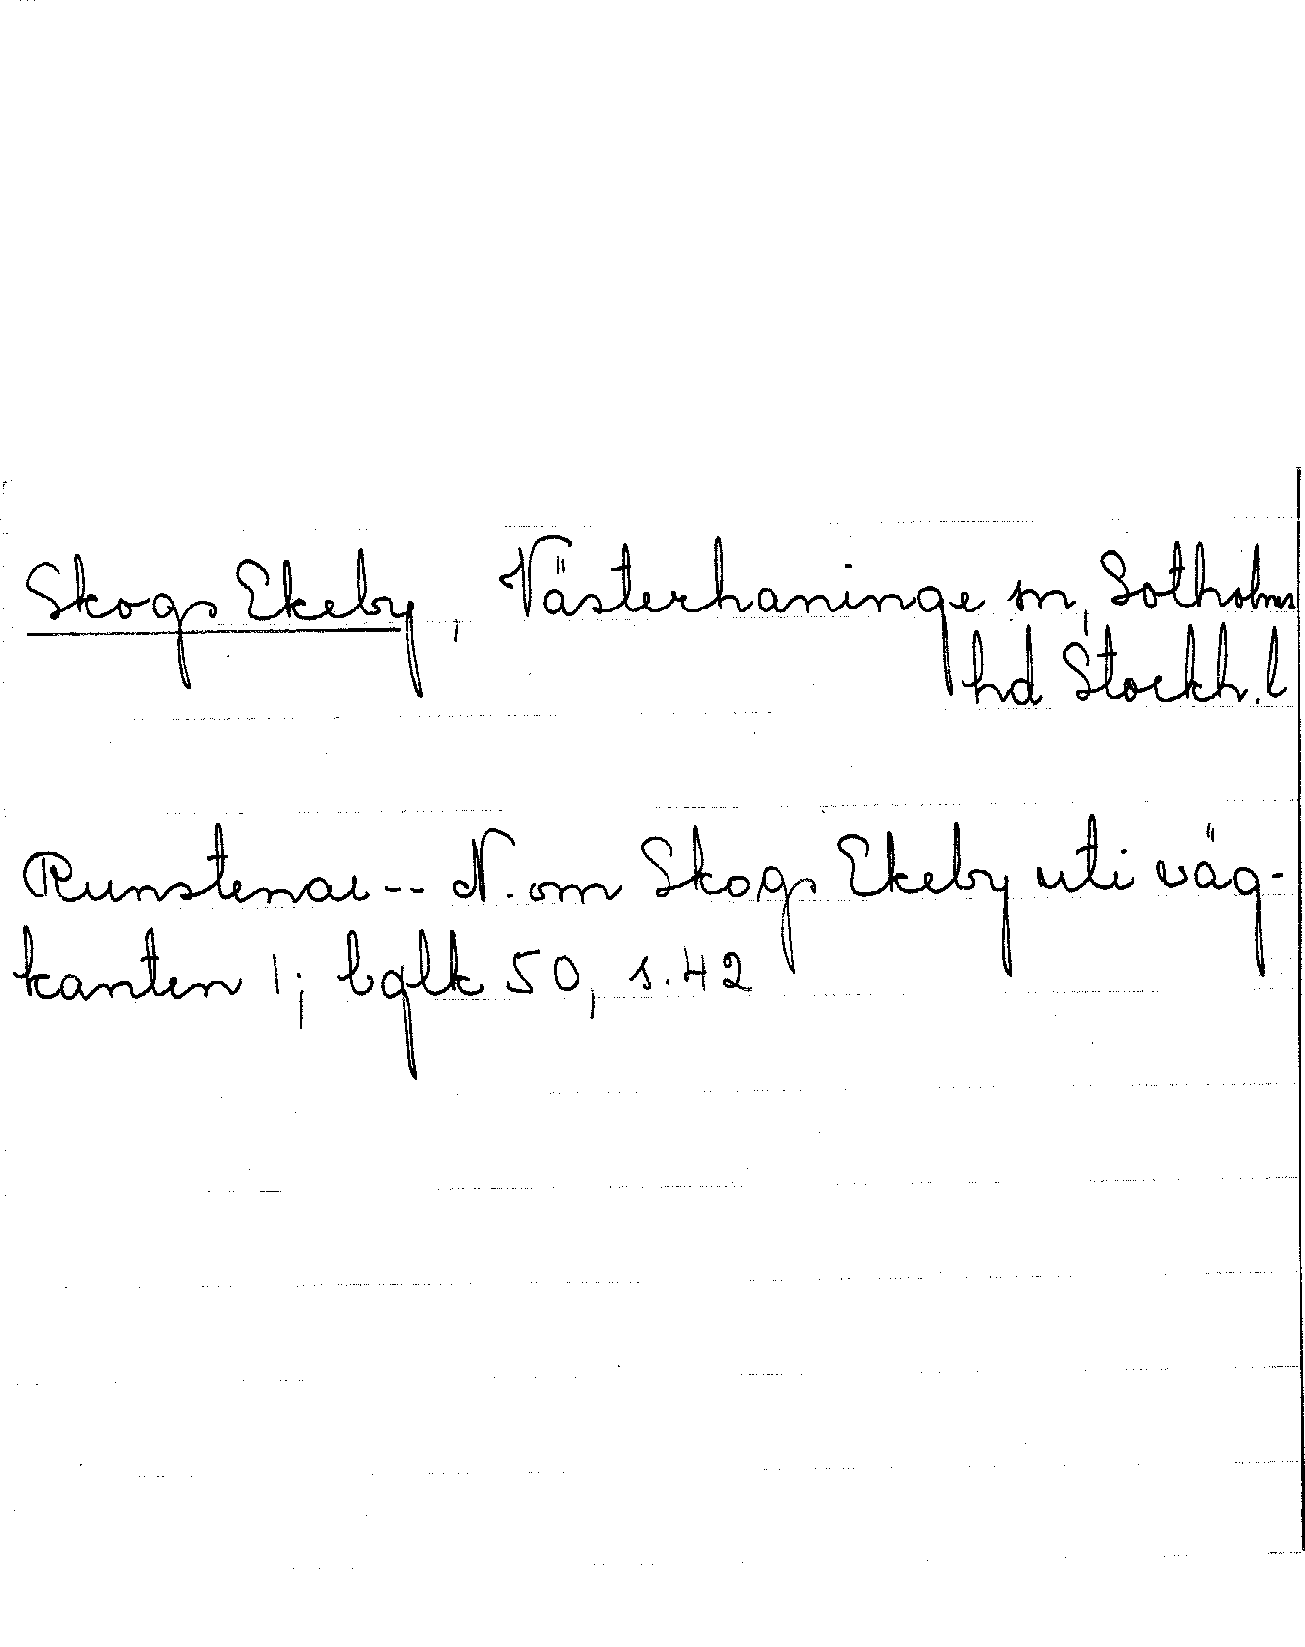 Skogs Ekeby, Västerhaninge sn, Sotholms
hd Stockh. l
Runstenar -- N. om Skogs Ekeby uti väg-
kanten 1; bglk 50, s. 42